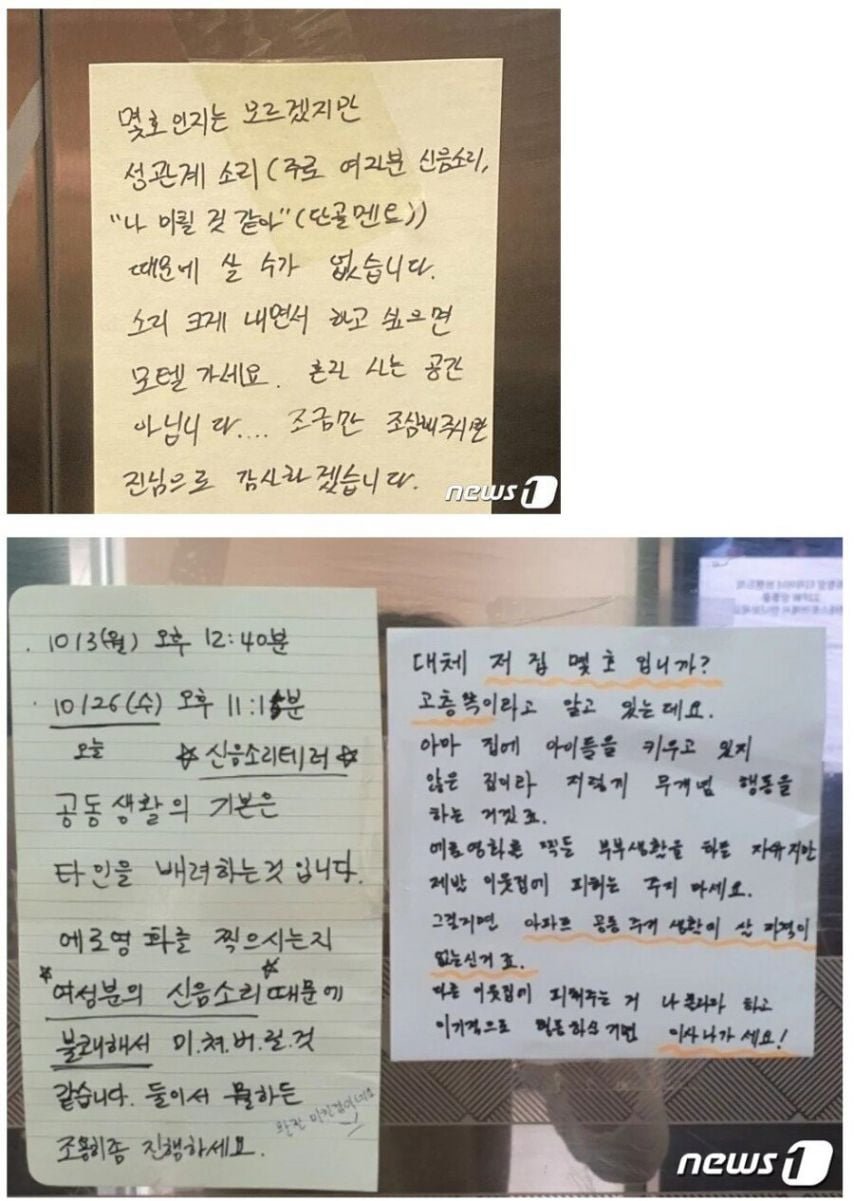 몇호인지는 모르겠지만
성관계 소리(주로 여자분 신음소리,
"나 미칠 것 같아"(단골멘트))
때문에 살 수가 없습니다.
소리 크게 내면서 하고 싶으면
모텔 가세요. 혼자 사는 공간
아닙니다.... 조금만 조심해주시면
진심으로 감사하겠습니다.
news1
· 10/3(월) 오후 12:40분
· 10/26(수) 오후 11:15분
오늘 ☆신음소리테러☆
공동생활의 기본은
타인을 배려하는것 입니다.
에로영화를 찍으시는지
☆여성분의 신음소리☆때문에
불쾌해서 미.쳐.버.릴.것
같습니다. 둘이서 뭘하든
완전 미친걸이네요
조용히좀 진행하세요.
대체 저 집 몇 호 입니까?
고층쪽이라고 알고 있는데요.
아마 집에 아이들을 키우고 있지
않은 집이라 저렇게 무개념 행동을
하는 거겠죠.
에로영화를 찍든 부부생활을 하든 자유지만
제발 이웃집에 피해는 주지 마세요.
그럴거면 아파트 공동 주거 생활이 살 자격이
없는신거죠.
다른 이웃집에 피해주는 거 나 몰라라 하고
이기적으로 행동하실 거면 이사 나가 세요!
news1